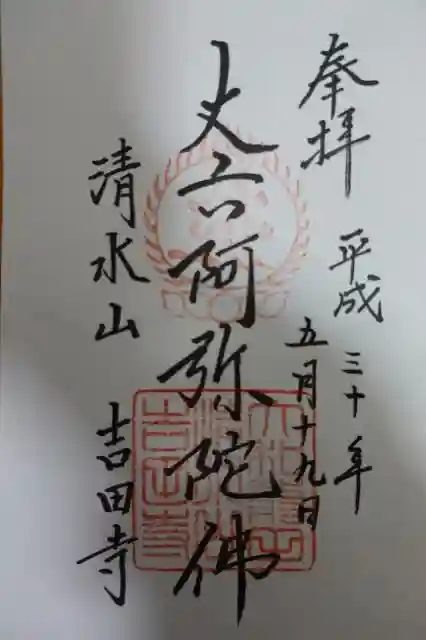 奉拝
平成三十年
五月十九日
丈六阿弥陀佛
清水山
吉田寺